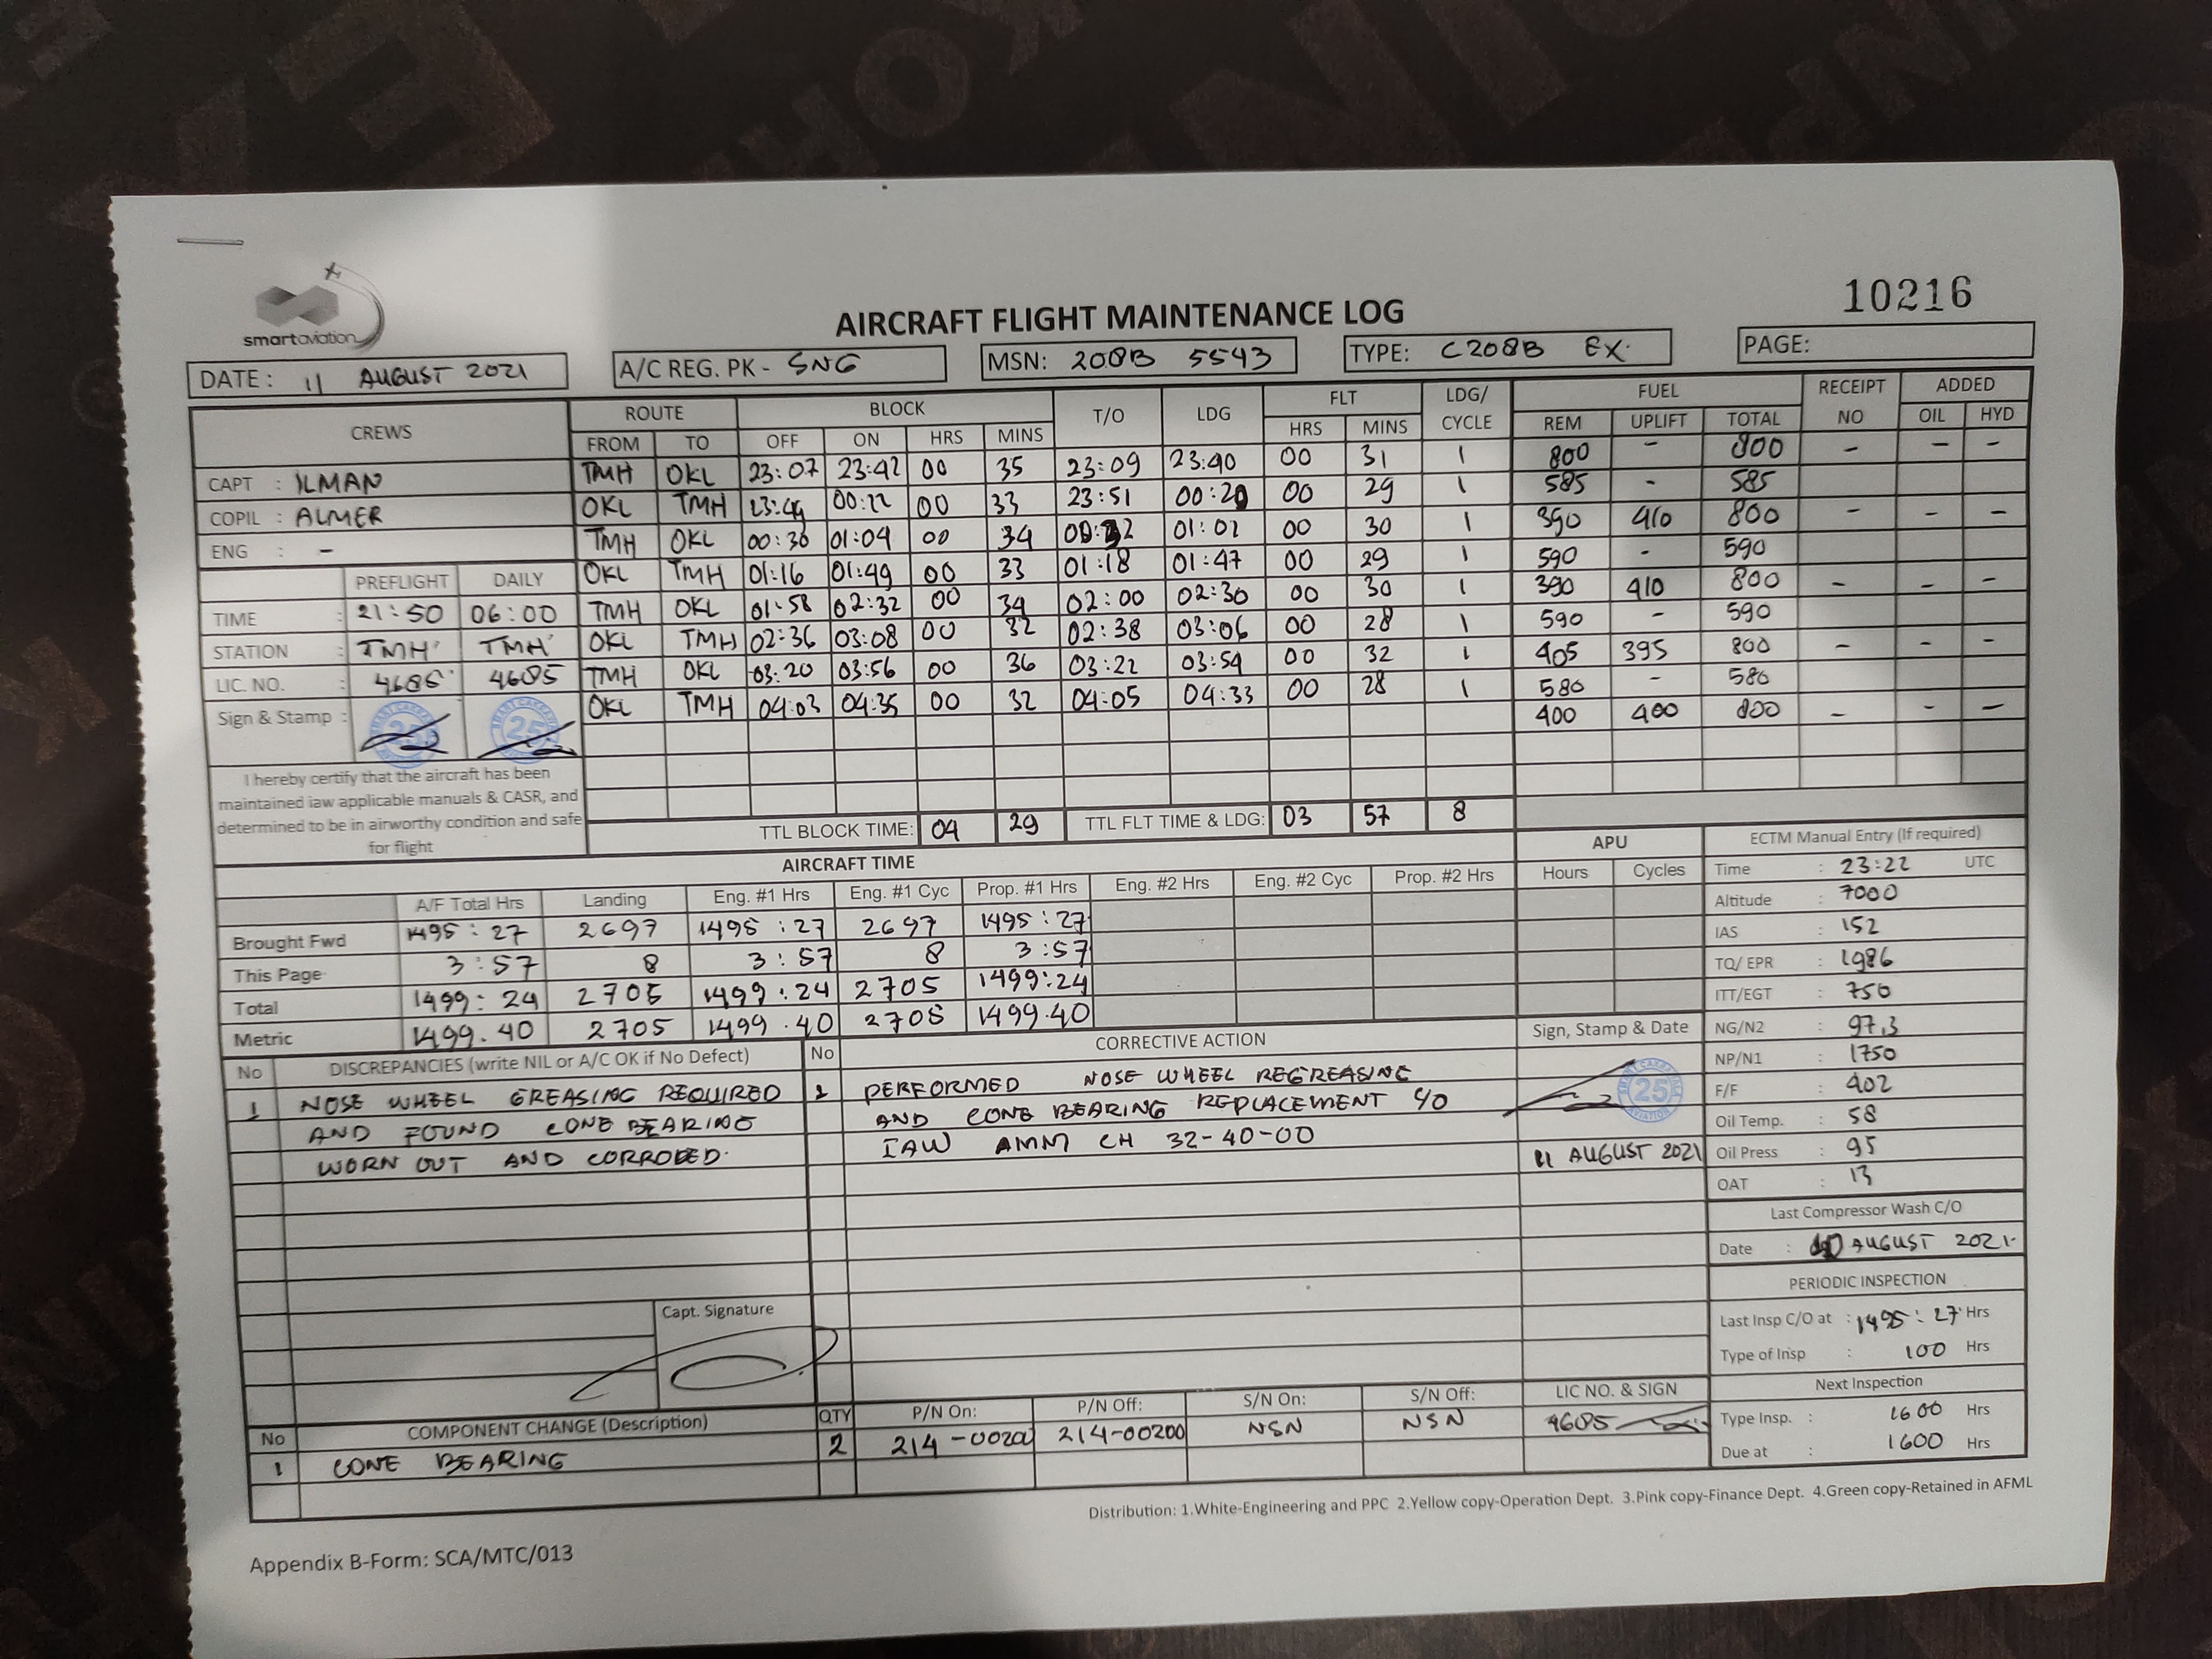 smartaviation
10216
AIRCRAFT FLIGHT MAINTENANCE LOG
DATE: 11 AUGUST 2021 A/C REG. PK - SNG MSN: 208B 5543 TYPE: C208B EX. PAGE:
CREWS ROUTE BLOCK T/O LDG FLT LDG/ CYCLE FUEL RECEIPT NO ADDED
FROM TO OFF ON HRS MINS HRS MINS REM UPLIFT TOTAL OIL HYD
CAPT : ILMAN
COPIL : ALMER
ENG : -
TMH OKL 23:07 23:42 00 35 23:09 23:40 00 31 1 800 - 800 - - -
OKL TMH 23:49 00:22 00 33 23:51 00:20 00 29 1 585 - 585
TMH OKL 00:30 01:04 00 34 00:32 01:02 00 30 1 390 410 800 - - -
OKL TMH 01:16 01:49 00 33 01:18 01:47 00 29 1 590 - 590
TMH OKL 01:58 02:32 00 34 02:00 02:30 00 30 1 390 410 800 - - -
OKL TMH 02:36 03:08 00 32 02:38 03:06 00 28 1 590 - 590
TMH OKL 03:20 03:56 00 36 03:22 03:54 00 32 1 405 395 800 - - -
OKL TMH 04:03 04:35 00 32 04:05 04:33 00 28 1 580 - 580
400 400 800 - - -
PREFLIGHT DAILY
TIME : 21:50 06:00
STATION : TMH TMH
LIC. NO. : 4685 4685
Sign & Stamp : 25 25
I hereby certify that the aircraft has been
maintained iaw applicable manuals & CASR, and
determined to be in airworthy condition and safe
for flight
TTL BLOCK TIME: 04 29 TTL FLT TIME & LDG: 03 57 8
AIRCRAFT TIME
A/F Total Hrs Landing Eng. #1 Hrs Eng. #1 Cyc Prop. #1 Hrs Eng. #2 Hrs Eng. #2 Cyc Prop. #2 Hrs
Brought Fwd 1495:27 2697 1495:27 2697 1495:27
This Page 3:57 8 3:57 8 3:57
Total 1499:24 2705 1499:24 2705 1499:24
Metric 1499.40 2705 1499.40 2705 1499.40
APU
Hours Cycles
ECTM Manual Entry (If required)
Time : 23:22 UTC
Altitude : 7000
IAS : 152
TQ/ EPR : 1986
ITT/EGT : 750
NG/N2 : 97.3
NP/N1 : 1750
F/F : 402
Oil Temp. : 58
Oil Press : 95
OAT : 13
Last Compressor Wash C/O
Date : AUGUST 2021
PERIODIC INSPECTION
Last Insp C/O at : 1495:27 Hrs
Type of Insp : 100 Hrs
Next Inspection
Type Insp. : 1600 Hrs
Due at : 1600 Hrs
No DISCREPANCIES (write NIL or A/C OK if No Defect)
1 NOSE WHEEL GREASING REQUIRED
AND FOUND CONE BEARING
WORN OUT AND CORRODED.
Capt. Signature
No CORRECTIVE ACTION Sign, Stamp & Date
1 PERFORMED NOSE WHEEL REGREASING
AND CONE BEARING REPLACEMENT C/O
IAW AMM CH 32-40-00
25
11 AUGUST 2021
No COMPONENT CHANGE (Description) QTY P/N On: P/N Off: S/N On: S/N Off: LIC NO. & SIGN
1 CONE BEARING 2 214-00200 214-00200 NSN NSN 4685
Distribution: 1.White-Engineering and PPC 2.Yellow copy-Operation Dept. 3.Pink copy-Finance Dept. 4.Green copy-Retained in AFML
Appendix B-Form: SCA/MTC/013